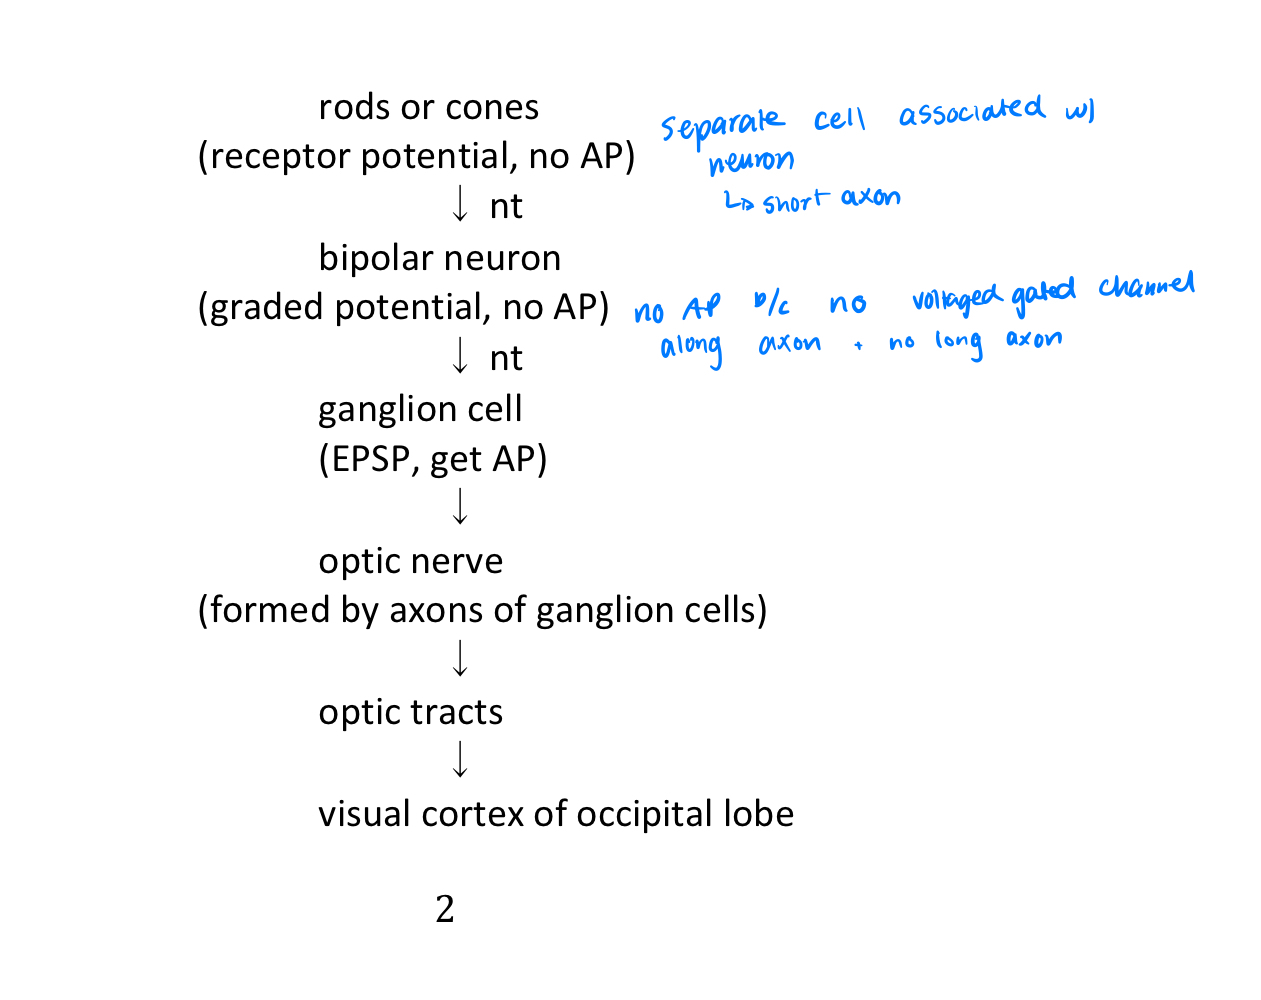 rods or cones
separate cell associated w/
(receptor potential, no AP)
neuron
↓ nt
↳ short axon
bipolar neuron
(graded potential, no AP)
no AP b/c no voltaged gated channel
along axon + no long axon
↓ nt
ganglion cell
(EPSP, get AP)
↓
optic nerve
(formed by axons of ganglion cells)
↓
optic tracts
↓
visual cortex of occipital lobe
2